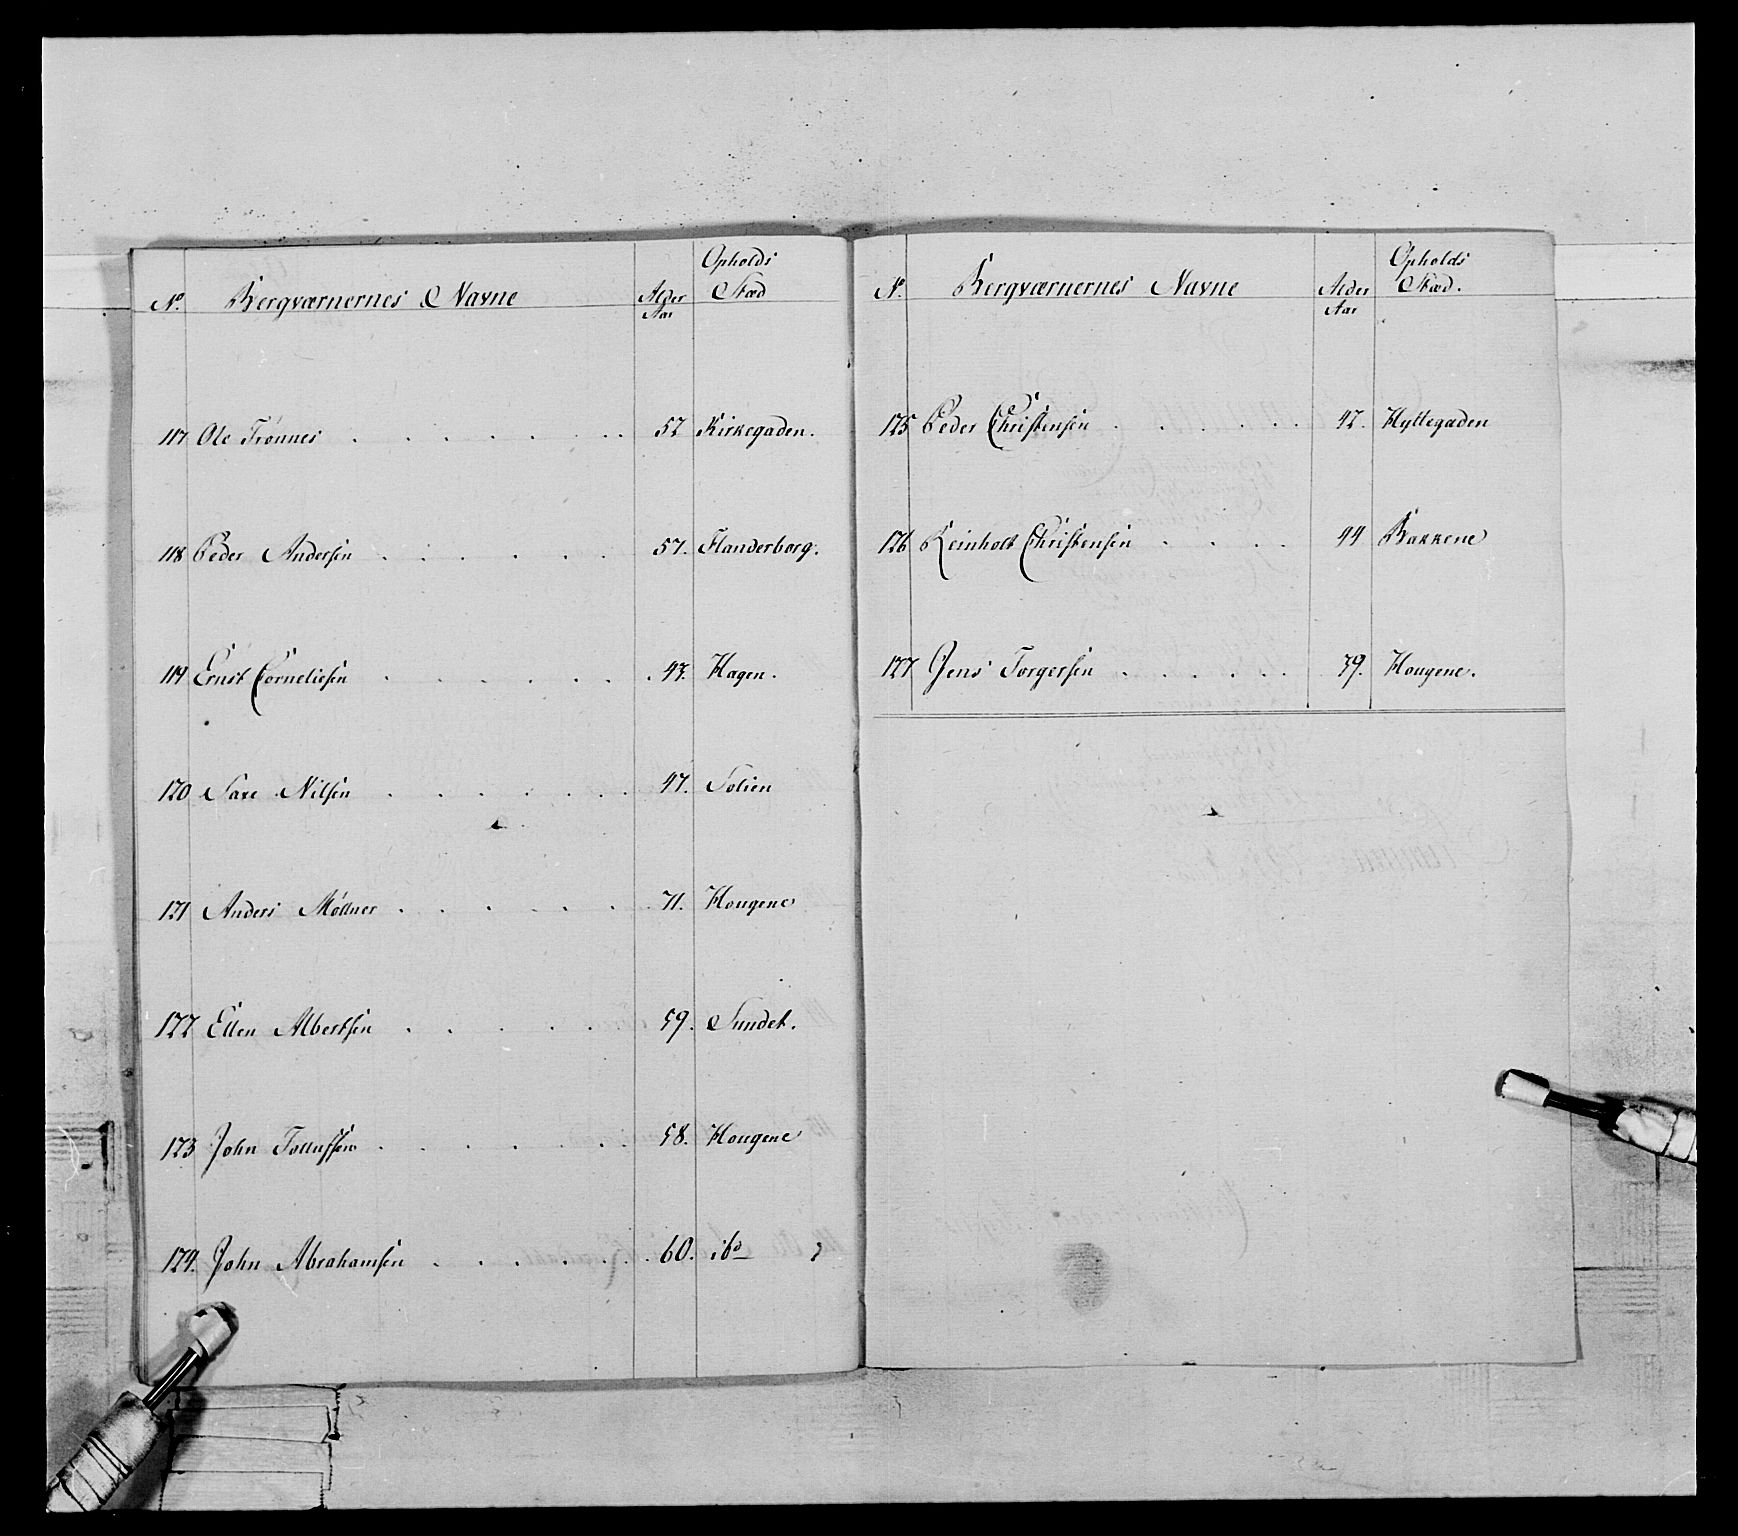 No. Bergværnernes Navne Alder Aar Opholds Stæd
117 Ole Trönnes . . . . . . . . 52 Kirkegaden.
118 Peder Andersen . . . . . . 57. Flanderborg.
119 Ernst Corneliesen . . . . . . . 47. Hagen.
120 Saxe Nilsen . . . . . . 47. Solien
121 Anders Möllner . . . . . . 71. Hougene
122 Ellen Albertsen . . . . . 59. Sundet.
123 John Tollufsen . . . . . . 58. Hougene
124. John Abrahamsen . . . . . . 60. ibd
No. Bergværnernes Navne Alder Aar Opholds Stæd.
125 Peder Christensen . . . . . 42. Hyttegaden
126 Reinholt Christensen . . . . 44 Bakkene
127 Jens Torgersen . . . . . . 39. Hougene.